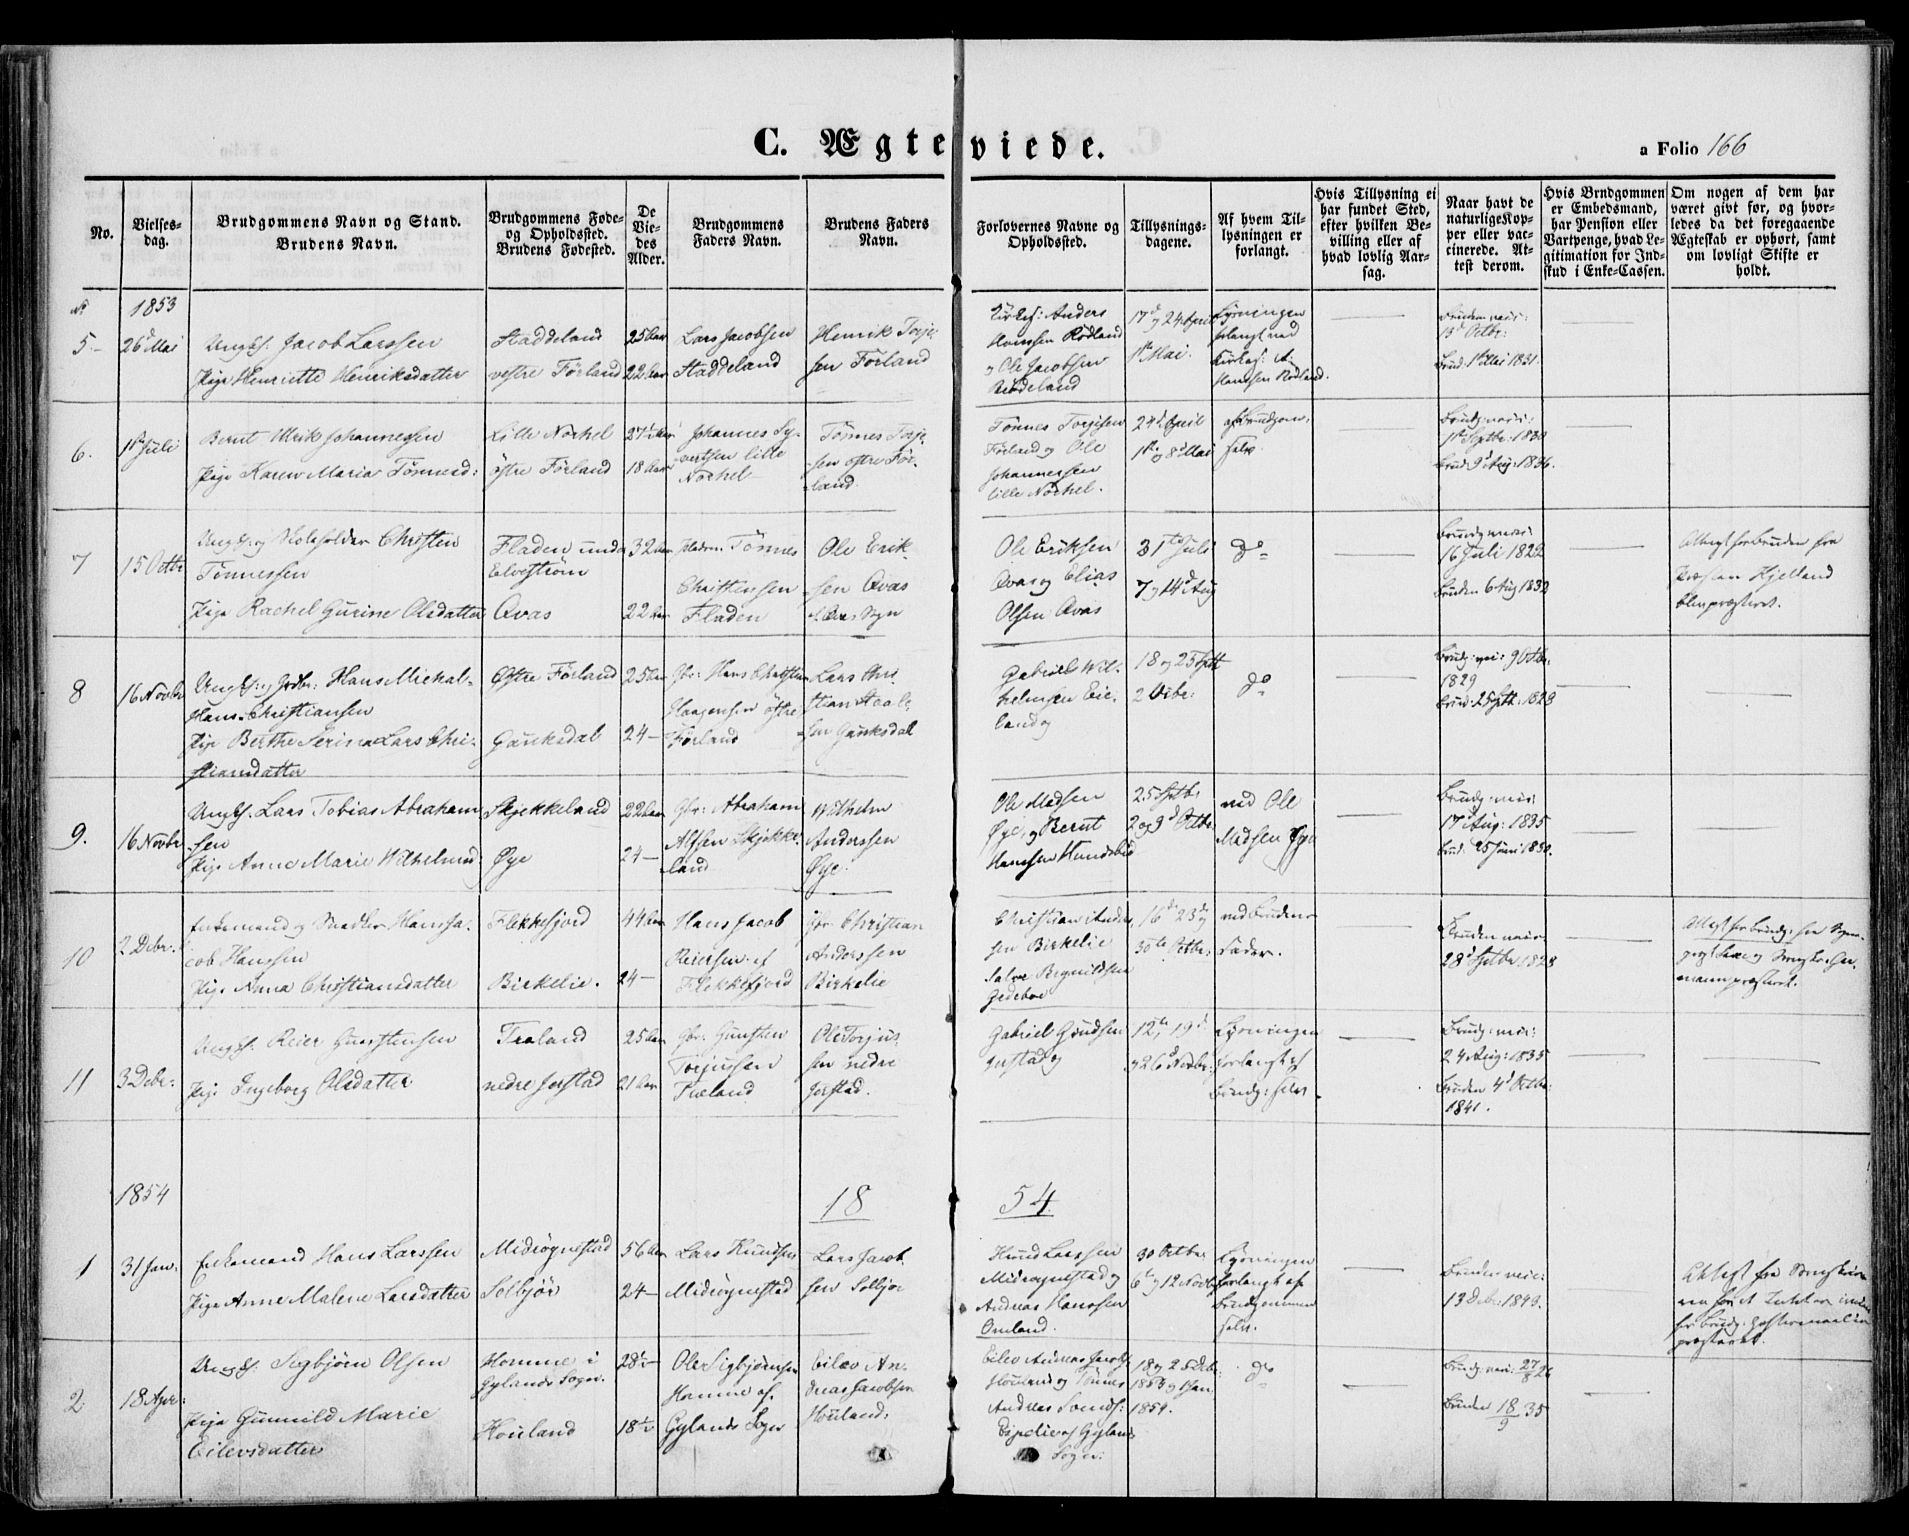 C. Ægteviede.
a Folio 166
No.
Vielses-
dag.
Brudgommens Navn og Stand.
Brudens Navn.
Brudgommens Føde-
og Opholdssted.
Brudens Fødested.
De
Vie-
des
Alder.
Brudgommens
Faders Navn.
Brudens Faders
Navn.
Forlovernes Navne og
Opholdssted.
Tillysnings-
dagene.
Af hvem Til-
lysningen er
forlangt.
Hvis Tillysning ei
har fundet Sted,
efter hvilken Be-
villing eller af
hvad lovlig Aar-
sag.
Naar havt de
naturlige Kop-
per eller vac-
cinerede. At-
test derom.
Hvis Brudgommen
er Embedsmand,
har Pension eller
Vartpenge, hvad Le-
gitimation for Ind-
skud i Enke-Cassen.
Om nogen af dem har
været givt før, og hvor-
ledes da det foregaaende
Ægteskab er ophørt, samt
om lovligt Skifte er
holdt.
1853
5
26d Mai
Ungk. Jacob Larssen
Pige Henriette Henriksdatter
Staddeland
vestre Förland
25 Aar
22 Aar
Lars Jacobsen
Staddeland
Henrik Torje-
sen Förland
Kirkes: Anders
Hanssen Rödland
og Ole Jacobsen
17d og 24 April
1ste Mai.
Lysningen
forlangt ved
Kirkes: A:
Hanssen Rödland.
Bruden vacc:
13d Octbr:
Brud. 1ste Mai 1831.
6.
1ste Juli
Bernt Ulrik Johannessen
Pige Karen Maria Tönnesd:
Lille Nochel
östre Förland
27½ Aar
18 Aar
Johannes Sy-
vertsen lille
Nochel
Tönnes Torje-
sen östre För-
land.
Tönnes Torjesen
Förland og Ole
Johannessen
lille Nochel.
24d April
1ste og 8d Mai
af Brudgom:
selv.
Brudg: vacc:
1ste Septbr: 1830
Brud 9d Aug: 1836.
7
15 Octbr
Ungk. og Skoleholder Christen
Tönnessen
Pige Rachel Gurine Olsdatter
Fladen under
Elvestrøm
Avas
32 Aar
22 Aar
Tönnes
Christensen
Fladen
Ole Erik-
sen Avas
Ole Eriksen
Avas og Elias
Olsen Avas
31te Juli
7 og 14d Aug
do
Brudg: vacc:
16 Juli 1822
Bruden 6 Aug 1832
Attest for Bruden fra
Hjelland
8
16 Novbr
Ungk: og Gdbr: Hans Michal
Hans Christiansen
Pige Berthe Serina Lars Chri-
stiansdatter
Østre Förland
Gauksdal
25 Aar
24 —
Gbr: Hans Christian
Haagensen östre
Förland
Lars Chri-
stian Staale-
sen Gauksdal
Gabriel Wil-
helmsen Eie-
land og
18 og 25 Septbr
2 Octbr:
do
Brudg: vacc: 9 Octbr:
1829
Brud: 25 Septbr: 1829
9.
16 Novbr
Ungk. Lars Tobias Abraham
sen
Pige Anne Marie Wilhelmsd:
Skjekkeland
Øye
22 Aar
24 —
Gbr: Abraham
Alfsen Skjekke-
land
Wilhelm
Anderssen
Øye.
Ole Madsen
Øye, og Bernt
Hanssen
25 Septbr
2 og 9d Octbr:
ved Ole
Madsen Øye
Brudg: vacc:
17d Aug: 1835
Brud: 25 Juni 1830.
10
2 Debr.
Enkemand og Snedker Hans Ja-
cob Hanssen
Pige Anna Christiansdatter
Flekkefjord
Birkelie.
44 Aar
24 —
Hans Jacob
Reiersen af
Flekkefjord
Gbr: Christian
Anderssen
Birkelie
Christian Anders
sen Birkelie
Gedeboe
16de 23de og
30te Octbr:
ved Brudens
Fader.
Bruden vacc:
28d Septbr 1828
Attest for Brudg: fra
11
3 Debr:
Ungk. Reier Gunstensen
Pige Ingeborg Olsdatter
Træland
nedre Jerstad
25 Aar
21 Aar
Gbr: Gunsten
Torjussen
Træland
Ole Torjus-
sen nedre
Jerstad.
Gabriel Gundsen
Jerstad og
12te 19d
og 26d Novbr:
Lysningen
forlangt af
Brudg: selv.
Brudg: vacc:
24 Aug: 1835
Bruden 4d Octbr:
1841.
1854
18
54
1
31 Jan:
Enkemand Hans Larssen
Pige Anne Malene Larsdatter
Midtögnestad
Solbjör
56 Aar
24 —
Lars Knudsen
Midtögnestad
Lars Jacob
sen Solbjör
Knud Larssen
Midtögnestad og
Andreas Hanssen
Omland.
30 Octbr
6te og 12 Novbr
Lysningen
forlangt af
Brudgommen
selv.
Bruden vacc:
13 Debr: 1843.
Attest fra
2
18 Apr:
Ungk. Sigbjörn Olsen
Pige Gunnild Marie
Eilevsdatter
Homme i
Gylands Sogn.
Houland
28½
18½
Ole Sigbjörnsen
Homme af
Gylands Sogn
Eilev An-
dreas Jacobsen
Houland.
Eilev Andreas Jacobs:
Houland og Tönnes
Andreas
Espelie af Gylands
Sogn.
18 og 25 Debr:
1853 og 1 Jan:
1854.
do
Brudg: vacc: 27/8 26
Bruden 18/9 35